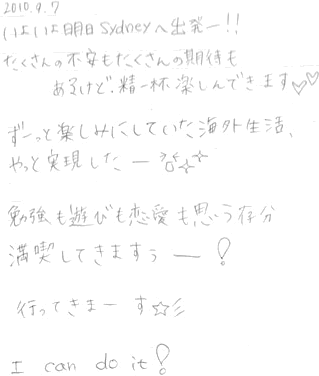 2010.9.7
いよいよ明日Sydneyへ出発ー!!
たくさんの不安もたくさんの期待も
あるけど、精一杯楽しんできます♡♡
ずーっと楽しみにしていた海外生活、
やっと実現したー
勉強も遊びも恋愛も思う存分
満喫してきますぅー!
行ってきまーす☆彡
I can do it!